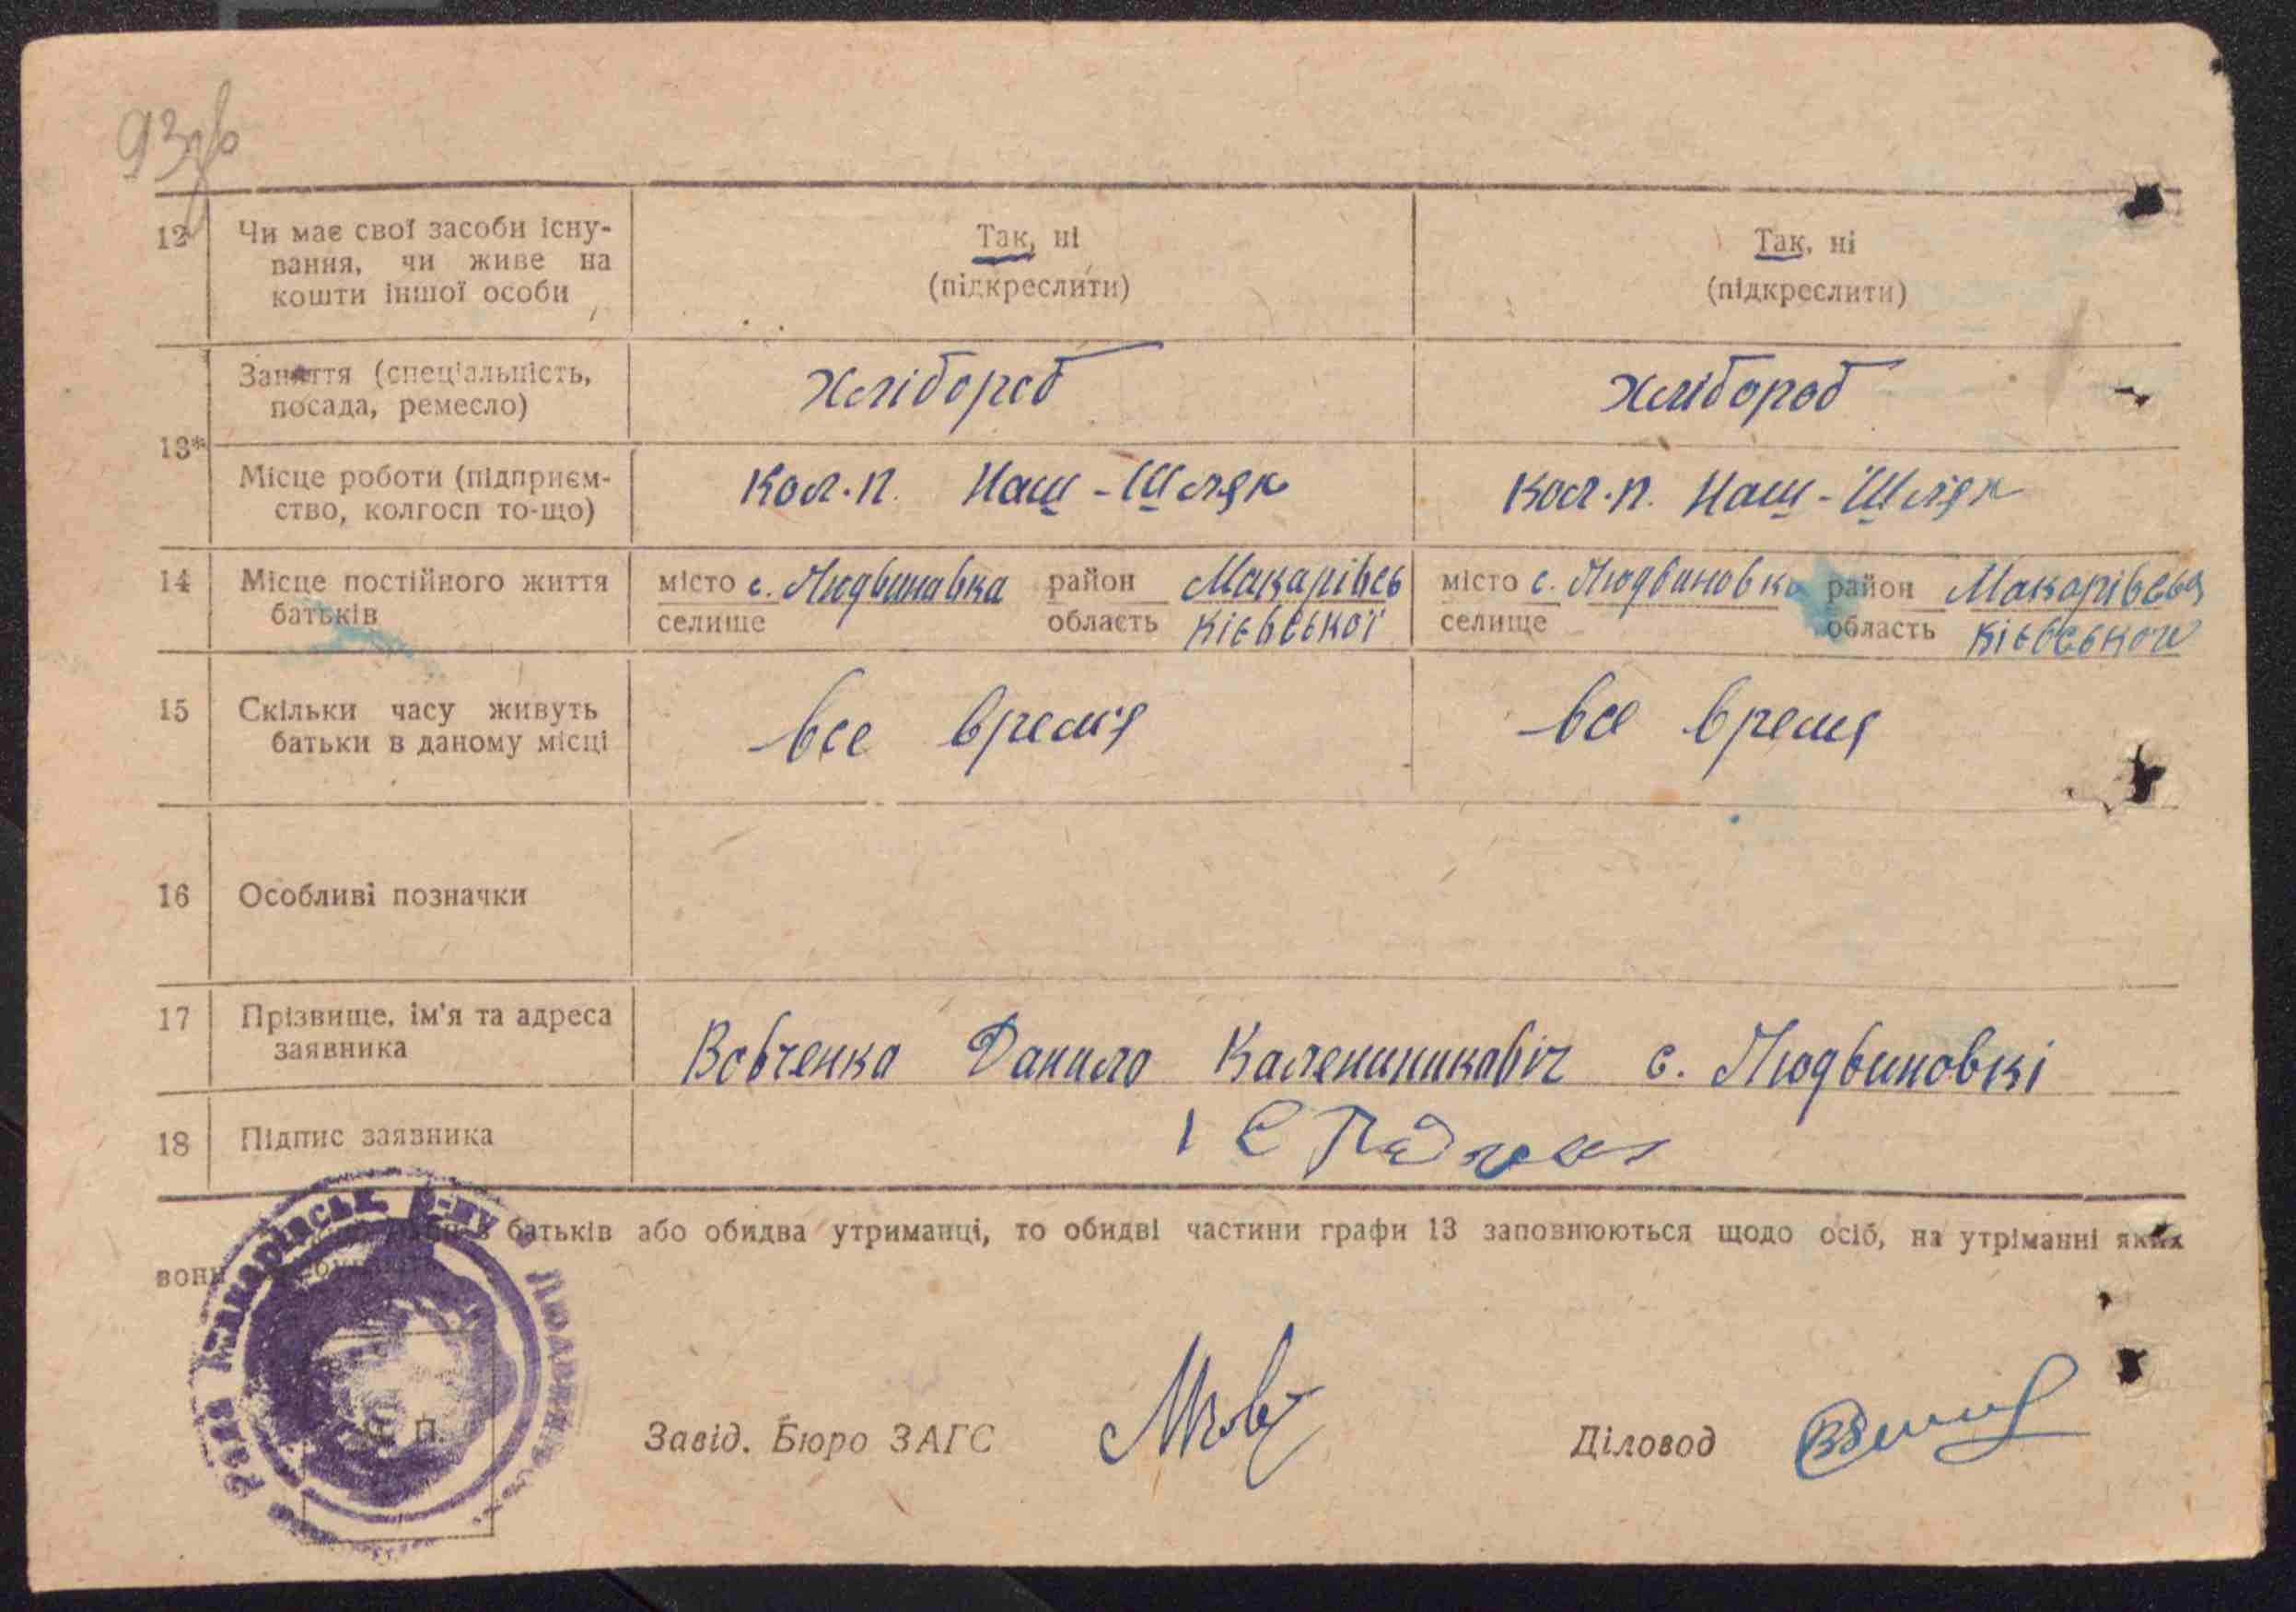 93зв
12 Чи має свої засоби існу-
вання, чи живе на
кошти іншої особи
Так, ні
(підкреслити)
Так, ні
(підкреслити)
13*
Заняття (спеціальність,
посада, ремесло)
Хлібороб
Хлібороб
Місце роботи (підприєм-
ство, колгосп то-що)
Кол.п. Наш-Шляк
Кол.п. Наш-Шляк
14 Місце постійного життя
батьків
місто с. Людвинавка район Макарівсь
селище область Кієвської
місто с. Людвиновка район Макарівська
селище область Кієвської
15 Скільки часу живуть
батьки в даному місці
все время
все время
16 Особливі позначки
17 Прізвище, ім'я та адреса
заявника
Вовченка Данило Калениникавіч с. Людвиновкі
18 Підпис заявника
батьків або обидва утриманці, то обидві частини графи 13 заповнюються щодо осіб, на утріманні яких
вони
Рада Макарівськ. р-ну Людвинів
П.
Завід. Бюро ЗАГС
Діловод